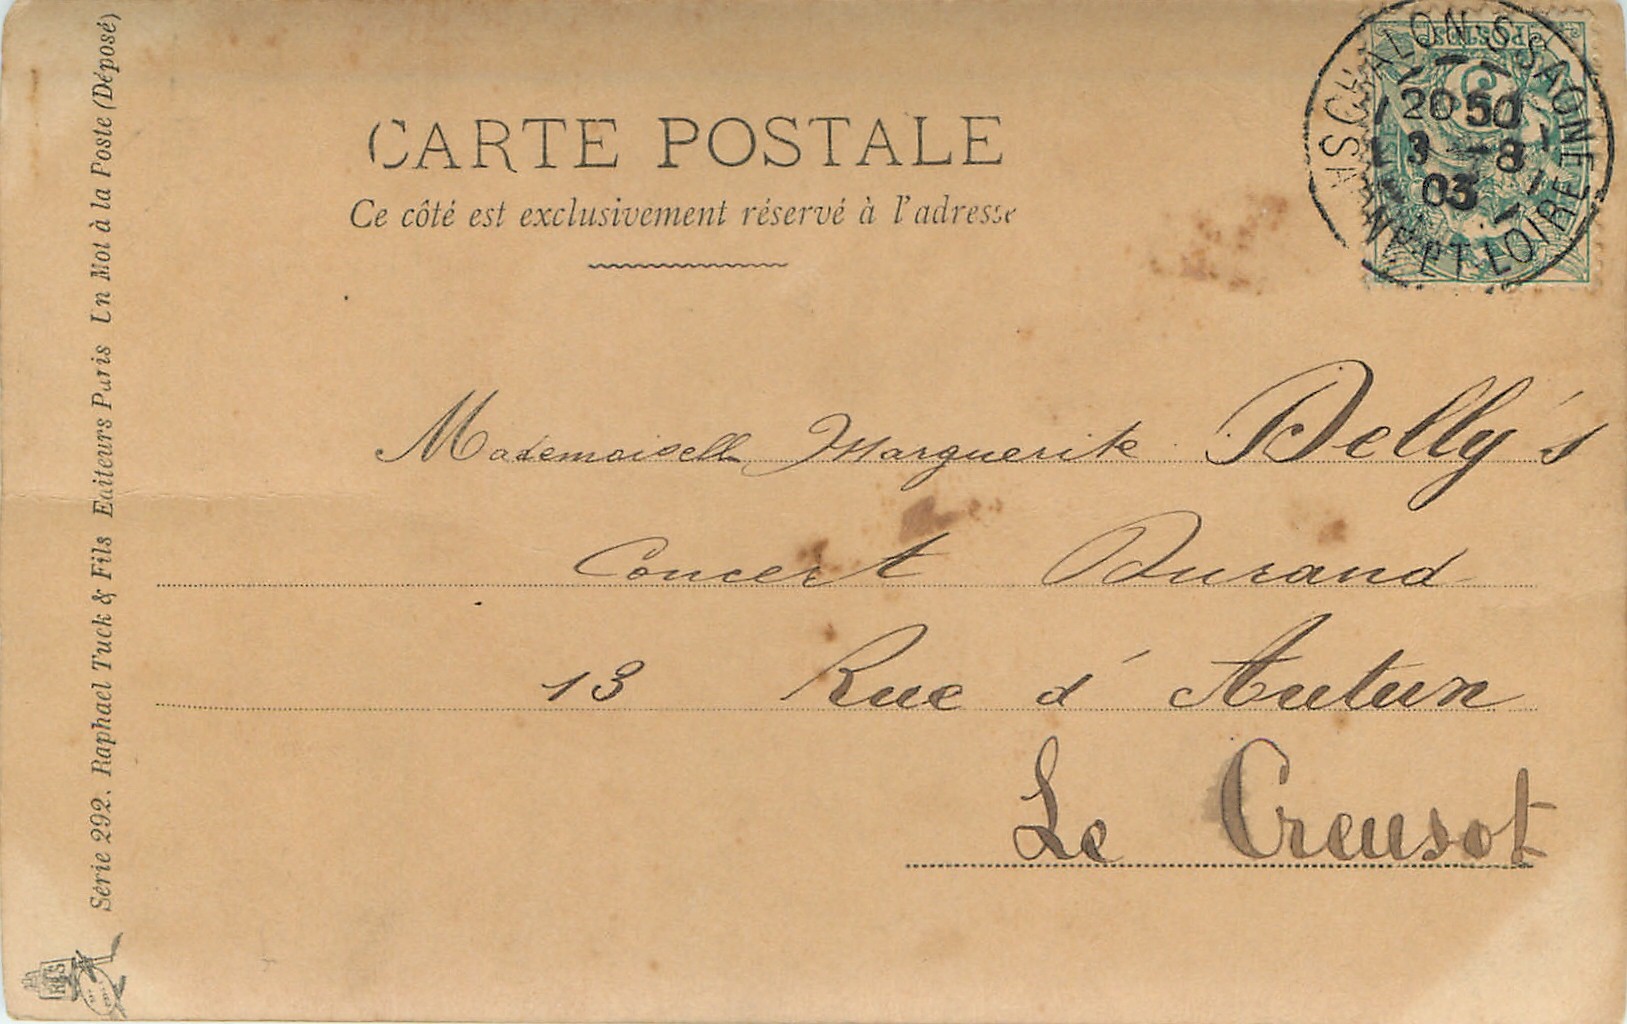 CARTE POSTALE
Ce côté est exclusivement réservé à l'adresse
CHALON S SAONE
20 50
3 - 8
03
ET LOIRE
POSTES
Mademoiselle Marguerite Delly's
Concert Durand
13 Rue d'Autun
Le Creusot
Série 292. Raphael Tuck & Fils Editeurs Paris Un Mot à la Poste (Déposé)